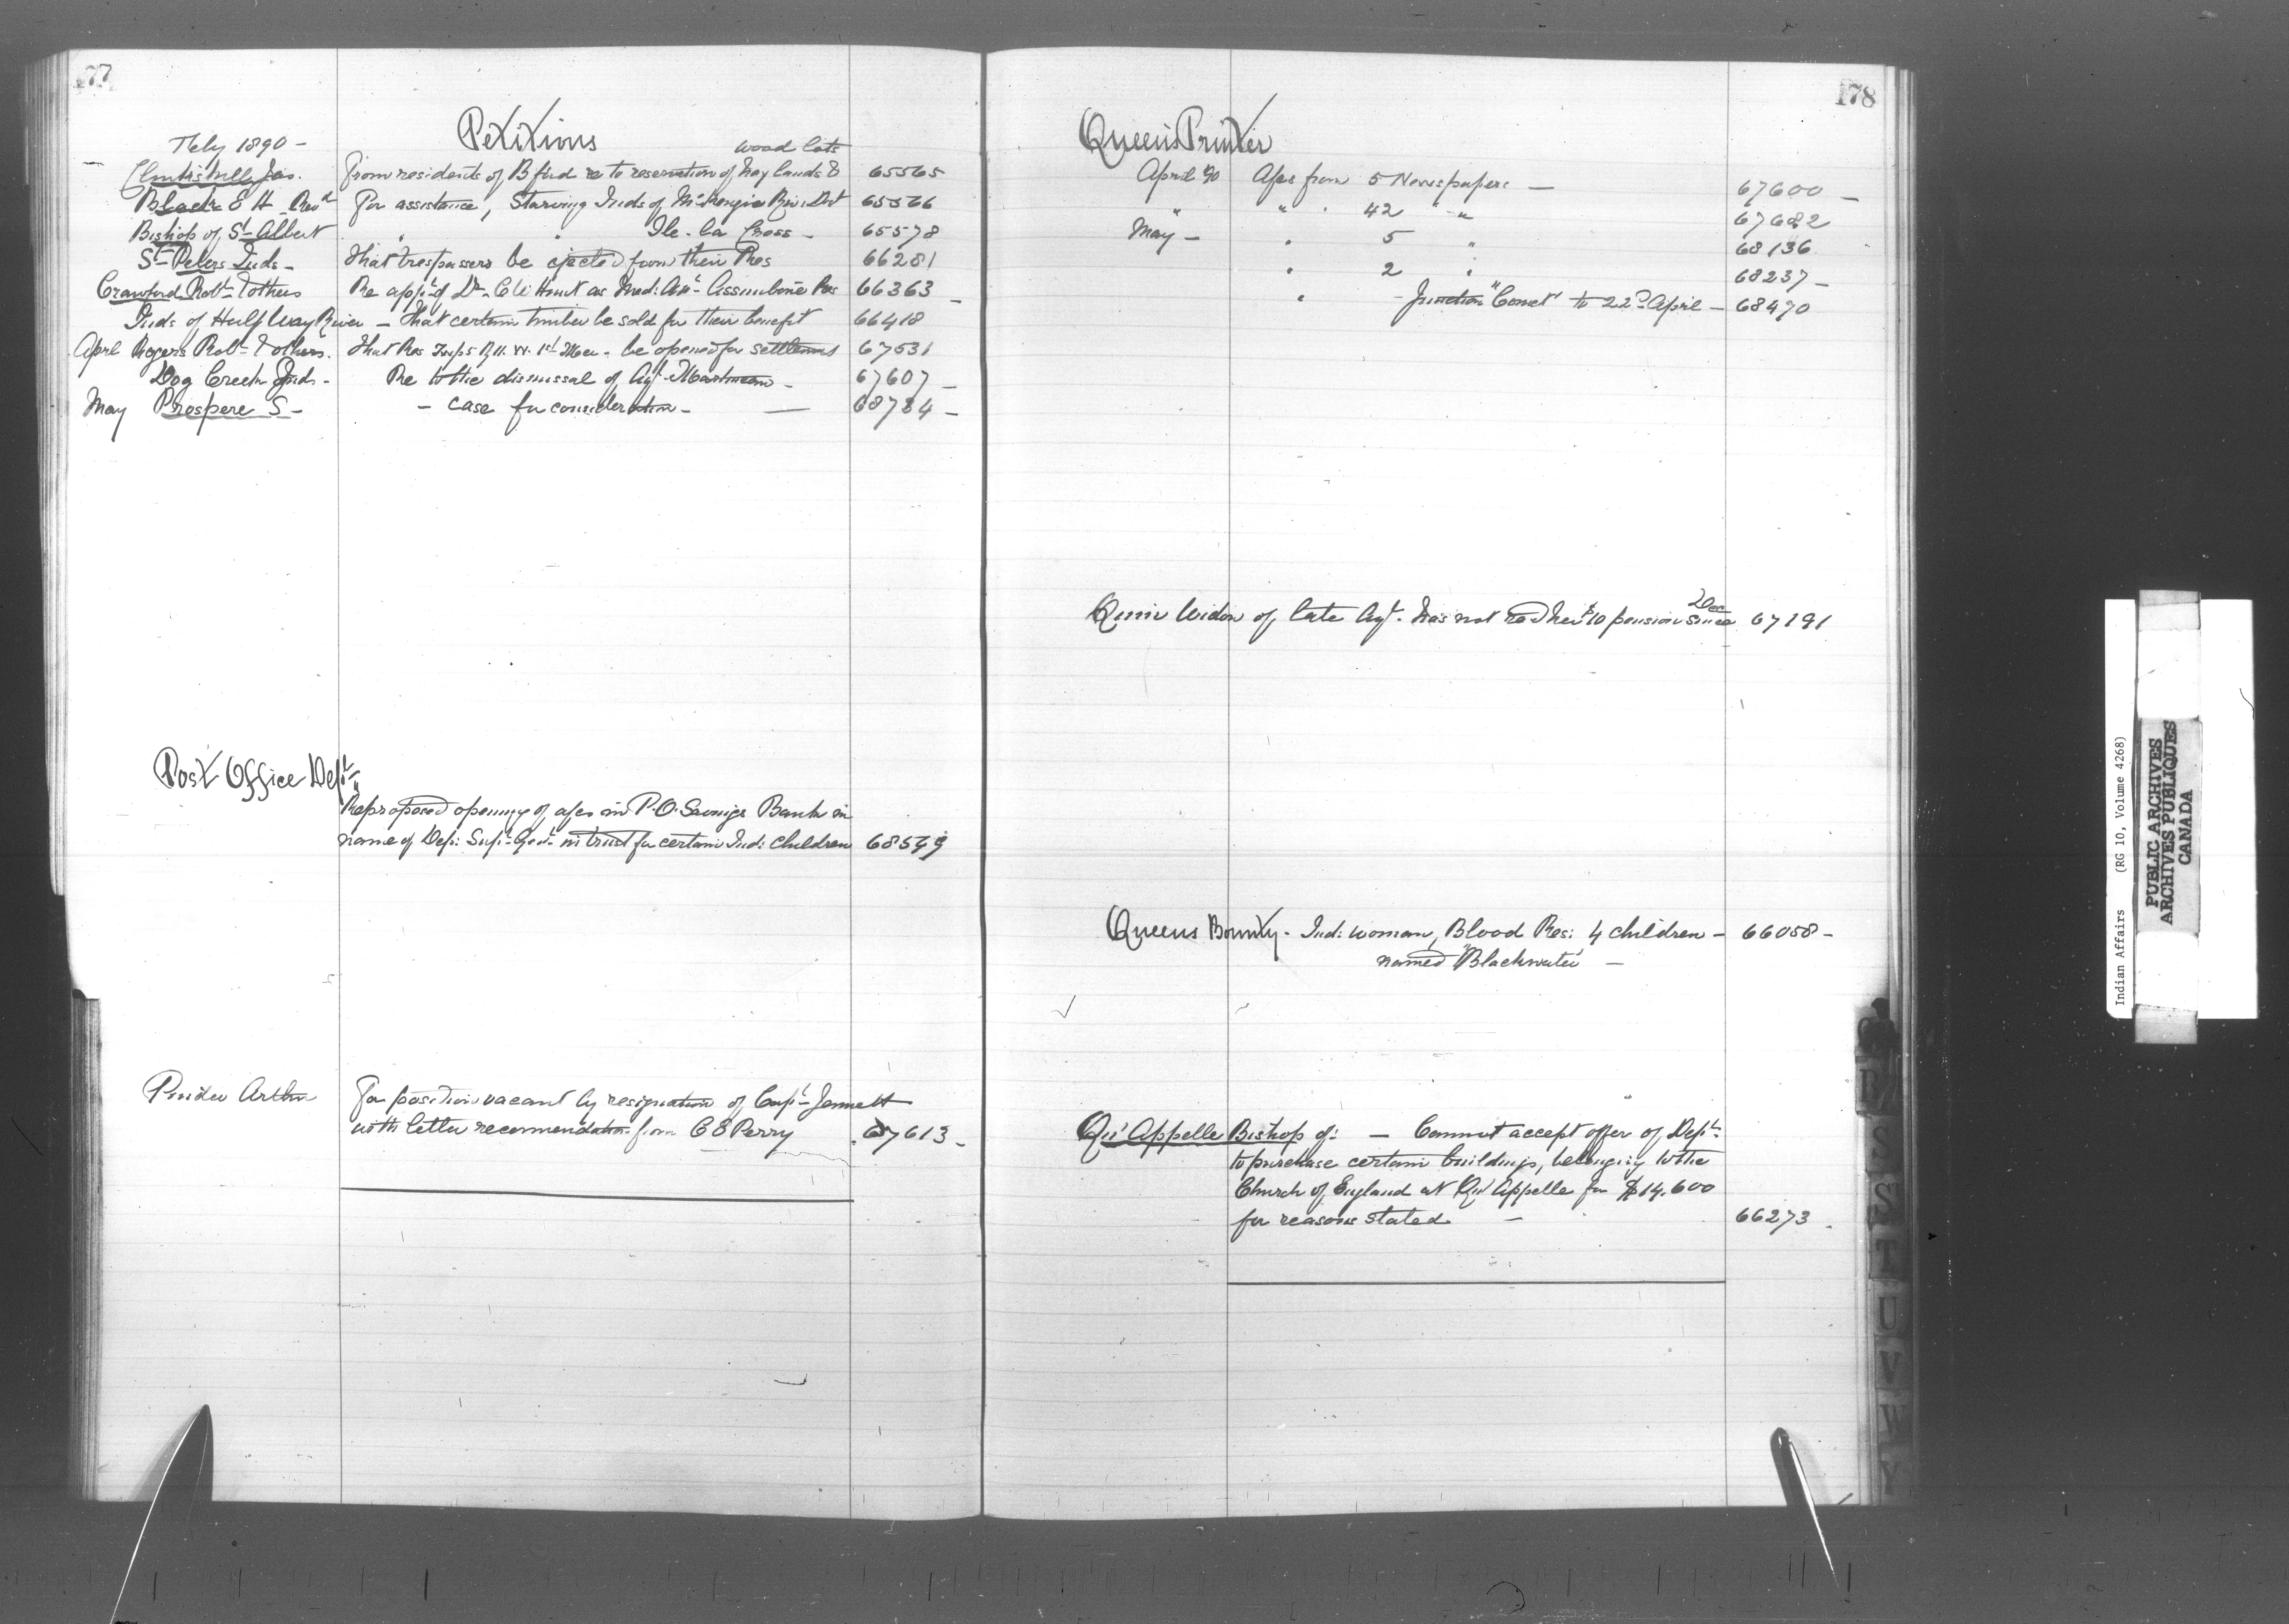 177
Petitions
Feby 1890 -
wood lots
Jas. From residents of B ford re to reservation of hay lands & 65565
Black E H Revd For assistance, Starving Inds of McKenzie Riv. Dist 65566
Bishop of St Albert " " Ile-la Cross - 65578
St Peters Inds - That trespassers be ejected from their Res 66281
Crawford Robt & others Re appt of Dr. Hunt as Med: Att Assiniboine Res 66363 -
Inds of Half Way River - That certain timber be sold for their benefit 66418
April Rogers Robt & others. That Res Twp 5 R 11. W. 1st Mer - be opened for settlement 67531
Dog Creek Inds - Re to the dismissal of Agt. Martineau - 67607 -
May Prospere S - - case for consideration - — 68784 -
Post Office Dept
Re proposed opening of a/cs in P.O. Savings Bank in
name of Dep: Supt Genl in trust for certain Ind: children 68599
Pinder Arthur For position vacant by resignation of Capt Jemmett
with letter recommendation from C E Perry 67613 -
178
Queen's Printer
April 90 A/cs from 5 Newspapers — 67600 -
" " " 42 " " 67682
May - " 5 " 68136
" 2 " 68237 -
" - Junction "Comet" to 22d April - 68470
Dec
Quin Widow of late Agt. has not recd her $10 pension since 67191
Queens Bounty - Ind: woman, Blood Res: 4 children - 66058 -
named "Blackwater" —
Qu'Appelle Bishop of: — Cannot accept offer of Dept.
to purchase certain buildings, belonging to the
Church of England at Qu'Appelle for $14.600
for reasons stated — 66273 .
R
S
T
U
V
W
Y
Indian Affairs (RG 10, Volume 4268)
PUBLIC ARCHIVES
ARCHIVES PUBLIQUES
CANADA